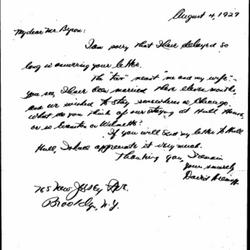 August 4, 1927
My dear Mr. Byron:
I am sorry that I have delayed so
long in answering your letter.
The "two" meant "me and my wife" -
you see, I have been married these eleven months,
and we wished to stay somewhere in Chicago.
What do you think of our staying at Hull House,
or in Evanston or Wilmette?
If you will send my letter to Hull
Hull, I shall appreciate it very much.
Thanking you, I remain
Yours sincerely,
David
New Jersey Ave.
Brooklyn, N.Y.